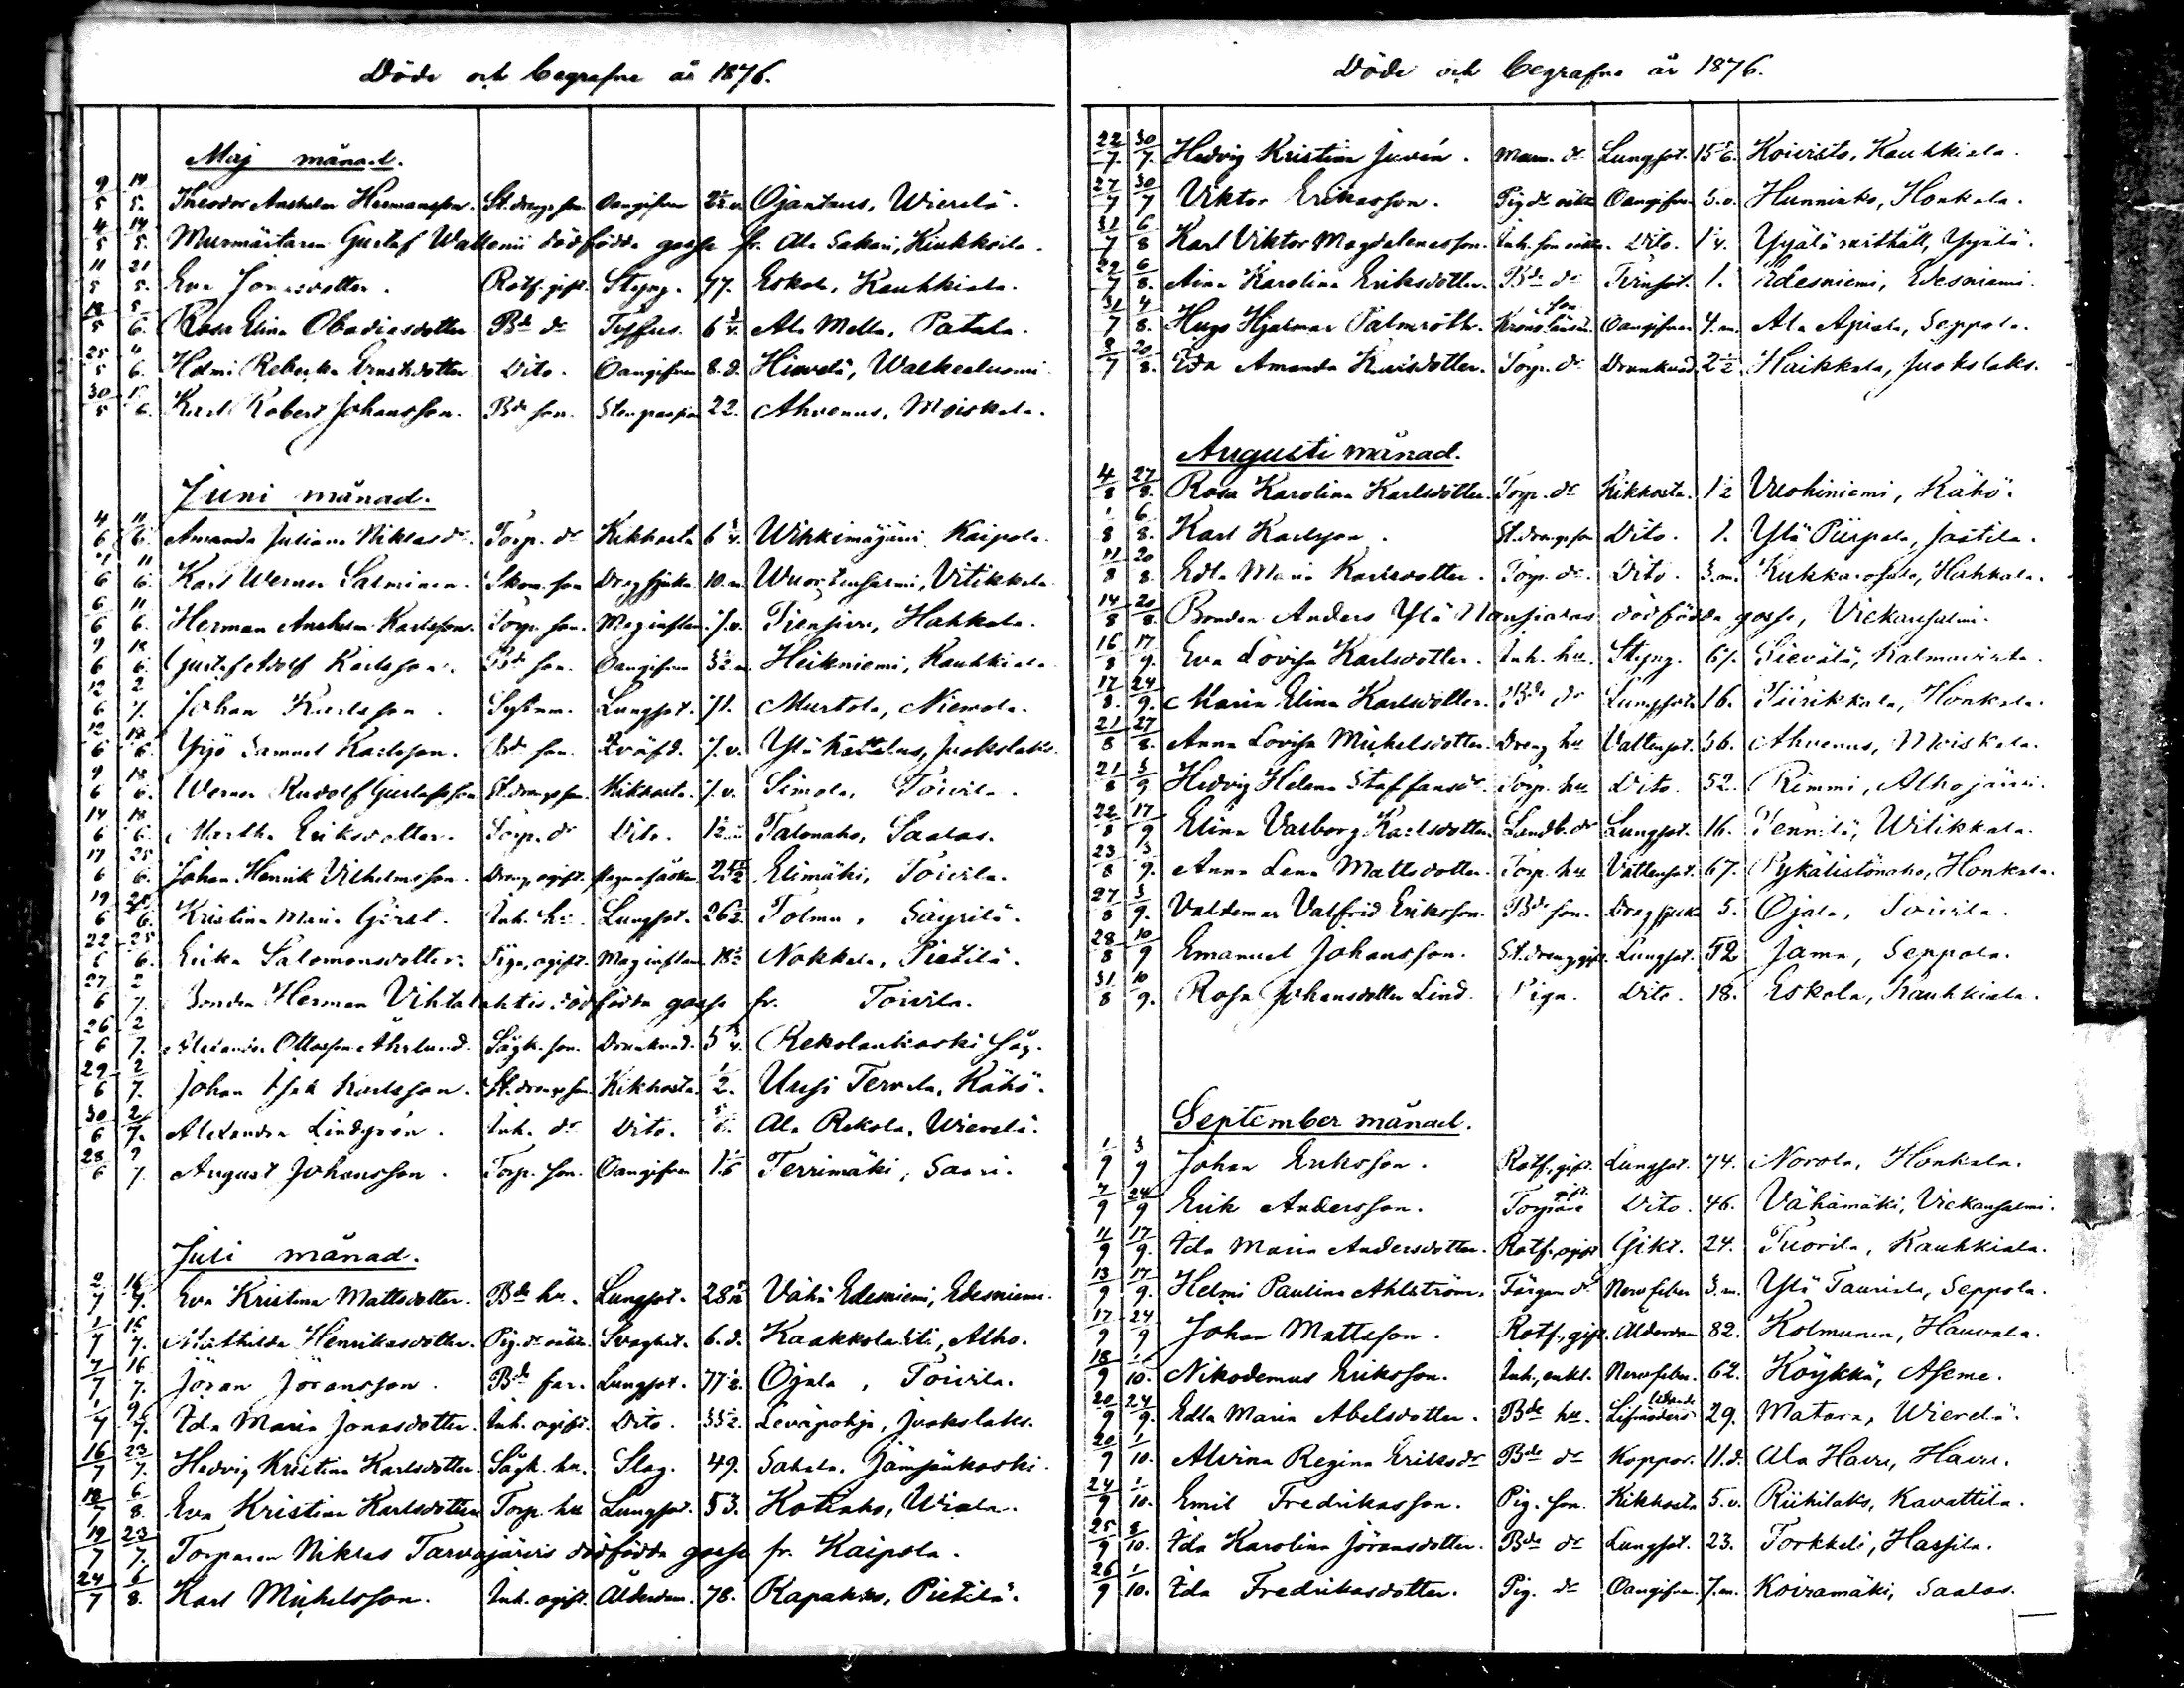 Döde och begrafne år 1876.
Maj månad.
9/5 14/5. Theodor Anshelm Hermansson. St. drengs son Oangifven 2½ v. Ojantaus, Wierelä.
4/5 14/5. Murmästaren Gustaf Wallenii dödfödde gosse fr. Ala Sakari, Kiukkoila.
11/5 21/5. Eva Jonasdotter. Rotf. gift. Styng. 77. Eskola, Kauhkiala.
18/5 5/6. Rosa Elina Obadiasdotter Bde dr Tyffus. 6¾. Ala Mella, Patala.
25/5 4/6. Helmi Rebecka Ernstsdotter Dito. Oangifven 8. d. Hirvelä, Walkealuomi
30/5 /6. Karl Robert Johansson. Bde son. Stenpassion 22. Ahvenus, Moiskala.
Juni månad.
4/6 11/6. Amanda Juliana Niklasdr. Torp. dr Kikhosta 6¾. Wihkimäjärvi Kaipola.
/6 11/6. Karl Werner Salminen. Skom. son Dragsjuka 10. m. Vitikkala
6/6 11/6. Herman Anshelm Karlsson. Torp. son. Mag inflam. 7. v. Hahkala.
9/6 18/6. Gustaf Adolf Karlsson. Bde son. Oangifven 3½ m. Heikniemi, Kauhkiala
12/6 2/7. Johan Karlsson. Lungsot. 71. Murtola, Niemola.
12/6 18/6. Yrjö Samuel Karlsson. Bde son. Qväfd. 7. v. Ylä Juokslaks.
9/6 18/6. Werner Rudolf Gustafsson St. drengs son. Kikhosta. 7. v. Simola, Toivila.
14/6 18/6. Martha Eriksdotter. Torp. dr Dito. 1½ Talonaho, Saalas.
17/6 25/6. Johan Henrik Vilhelmsson. Dreng, ogift. Elimäki, Toivila.
19/6 25/6. Kristina Maria Göral. Inh. hu. Lungsot. 26½. Tolmu, Säyrilä.
22/6 25/6. Erika Salomonsdotter. Piga, ogift. Mag inflam 18½ Nokkala, Pietilä.
27/6 2/7. Bonden Herman Vihtalahtis dödfödde gosse fr. Toivila.
26/6 2/7. Alexander Ottosson Åkerlund. Sågk. son. Drunknad. 5¾. Rekolankoski såg.
29/6 2/7. Johan Isak Karlsson. St. drengs son. Kikhosta. ½. Uusi Tervala, Kähö.
30/6 2/7. Alexandra Lindgrén. Inh. dr Dito. Ala Rekola, Wierelä.
28/6 9/7. August Johansson. Torp. son. Oangifven Terrimäki, Saari.
Juli månad.
2/7 16/7. Eva Kristina Mattsdotter. Bde hu. Lungsot. Vähä Edesniemi, Edesniemi.
1/7 16/7. Mathilda Henriksdotter. Pig. dr oäkta. Svaghet. 6. d. Kaakkolahti, Alho.
7/7 16/7. Jöran Jöransson. Bde far. Lungsot. 77½. Ojala, Toivila.
1/7 9/7. Ida Maria Jonasdotter. Inh. ogift. Dito. 33½. Levapohja, Juokslaks.
16/7 23/7. Hedvig Kristina Karlsdotter. Sågk. hu. Slag. 49. Sahala, Jämsänkoski.
18/7 6/8. Eva Kristina Karlsdotter Torp. hu Lungsot. 53. Kotiaho, Wiala.
19/7 23/7. Torparen Niklas Tarvajärvis dödfödde gosse fr. Kaipola.
24/7 6/8. Karl Michelsson. Inh. ogift. Ålderdom. 78. Rapakko, Pietilä.
Döde och begrafne år 1876.
22/7. 30/7. Hedvig Kristina Juvén. Mam. dr Lungsot. 15 5/6. Koivisto, Kauhkiala.
27/7 30/7 Viktor Eriksson. Pig dr oäkta Oangifven 3. v. Hunninko, Honkala.
31/7 6/8 Karl Viktor Magdalenasson. Inh. son oäkta. Dito. 1¼. Yijälä Yijälä.
29/7 6/8. Aina Karolina Eriksdotter. Bde dr Tvinsot. 1. Edesniemi, Edesniemi.
31/7 4/8. Hugo Hjalmar Palmroth. Krono länsm. son Oangifven 4. m. Ala Apiala, Seppola.
8/7 20/8. Ida Amanda Torp. dr Drunknad. 2½. Haikkala, Juokslaks.
Augusti månad.
4/8 27/8. Rosa Karolina Karlsdotter. Torp. dr Kikhosta. 1½ Vuohiniemi, Kähö.
1/8 6/8. Karl Karlsson. St. drengs son Dito. 1. Ylä Piirpala, Jaatila.
11/8 20/8. Edla Maria Karlsdotter. Torp. dr. Dito. 3. m. Kuhkarofala, Hahkala.
14/8 20/8. Bonden Anders Ylä Hansialas dödfödde gosse, Vickansalmi.
16/8 17/9. Eva Lovisa Karlsdotter. Inh. hu. Styng. 67. Pievälä, Kalmavirta.
17/8. 24/9. Maria Elina Karlsdotter. Bde dr Lungsot 16. Piirikkala, Honkala.
21/8 27/8. Anna Lovisa Michelsdotter. Dreng hu Vattensot. 56. Ahvenus, Moiskala.
21/8 3/9 Hedvig Helena Staffansdr Torp. hu Dito. 52. Rimmi, Alhojärvi.
22/8 17/9 Elina Valborg Karlsdotter Landb. dr Lungsot. 16. Pennilä, Witikkala.
23/8 3/9. Anna Lena Mattsdotter. Torp. hu Vattensot. 67. Pykälistönaho, Honkala.
27/8 3/9. Valdemar Valfrid Eriksson. Bde son. Dragsjuka 5. Ojala, Toivila.
28/8 10/9 Emanuel Johansson. St. dreng gift. Lungsot. 52 Jama, Seppola.
31/8 10/9. Rosa Johansdotter Lind. Piga. Dito. 18. Eskola, Kauhkiala.
September månad.
1/9 3/9 Johan Eriksson. Rotf. gift. Lungsot. 74. Norola, Honkala.
7/9 24/9 Erik Andersson. Torpare gift. Dito. 46. Vähämäki, Vickansalmi.
11/9 17/9. Ida Maria Andersdotter. Rotf. ogift Gikt. 24. Tuorila, Kauhkiala.
13/9 17/9. Helmi Paulina Ahlström. Färgare dr Nervfeber 3. m. Ylä Tauriala, Seppola.
17/9 24/9 Johan Mattsson. Rotf., gift. Ålderdom 82. Kolmunen, Hauvala.
18/9 1/10. Nikodemus Eriksson. Inh., enkl. Nervfeber. 62. Köykkä, Aseme.
20/9 24/9. Edla Maria Abelsdotter. Bde hu. Lifmoders lidande 29. Matara, Wierelä.
20/9 1/10. Alvina Regina Eriksdr Bde dr Koppor. 11. d. Ala Haivu, Haivu.
24/9 1/10. Emil Fredriksson. Pig. son. Kikhosta 5. v. Riihilaks, Kavattila.
25/9 8/10. Ida Karolina Jöransdotter. Bde dr Lungsot. 23. Torkkeli, Hassila.
26/9 1/10. Ida Fredriksdotter. Pig. dr Oangifven. 7. m. Koiramäki, Saalas.